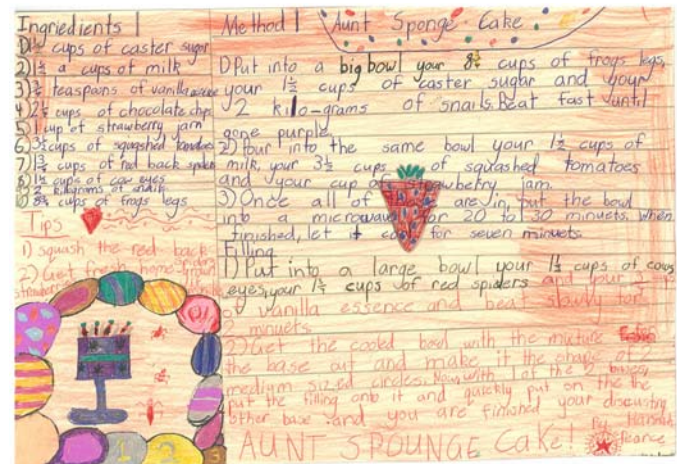 Ingriedients
1) 1½ cups of caster sugar
2) 1½ a cups of milk
3) teaspons of vanilla
4) 2½ cups of chocolate chips
5) 1 cup of strawberry jam
6) 3½ cups of squashed tomatoes
7) 1 cups of red back spiders
8) 1½ cups of cow eyes
9) 2 kilograms of snails
10) 8½ cups of frogs legs
Tips
1) squash the red back
spiders
2) Get fresh home grown
Method
Aunt Sponge Cake
1) Put into a big bowl your 8½ cups of frogs legs,
your 1½ cups of caster sugar and your
2 kilo-grams of snails. Beat fast until
gone purple.
2) Pour into the same bowl your 1½ cups of
milk, your 3½ cups of squashed tomatoes
and your cup of strawberry jam.
3) Once all of are in, put the bowl
into a microwave for 20 to 30 minuets. When
finished, let it cool for seven minuets.
Filling
1) Put into a large bowl your 1½ cups of cows
eyes, your cups of red spiders and your
of vanilla essence and beat slowly for
2 minuets
2) Get the cooled bowl with the mixture
the base out and make it the shape of 2
medium sized circles. Now, with 1 of the 2 bases,
put the filling onto it and quickly put on the the
other base and you are finished your discusting
AUNT SPOUNGE CaKe!
By
Hamish
Pearce
1
2
3